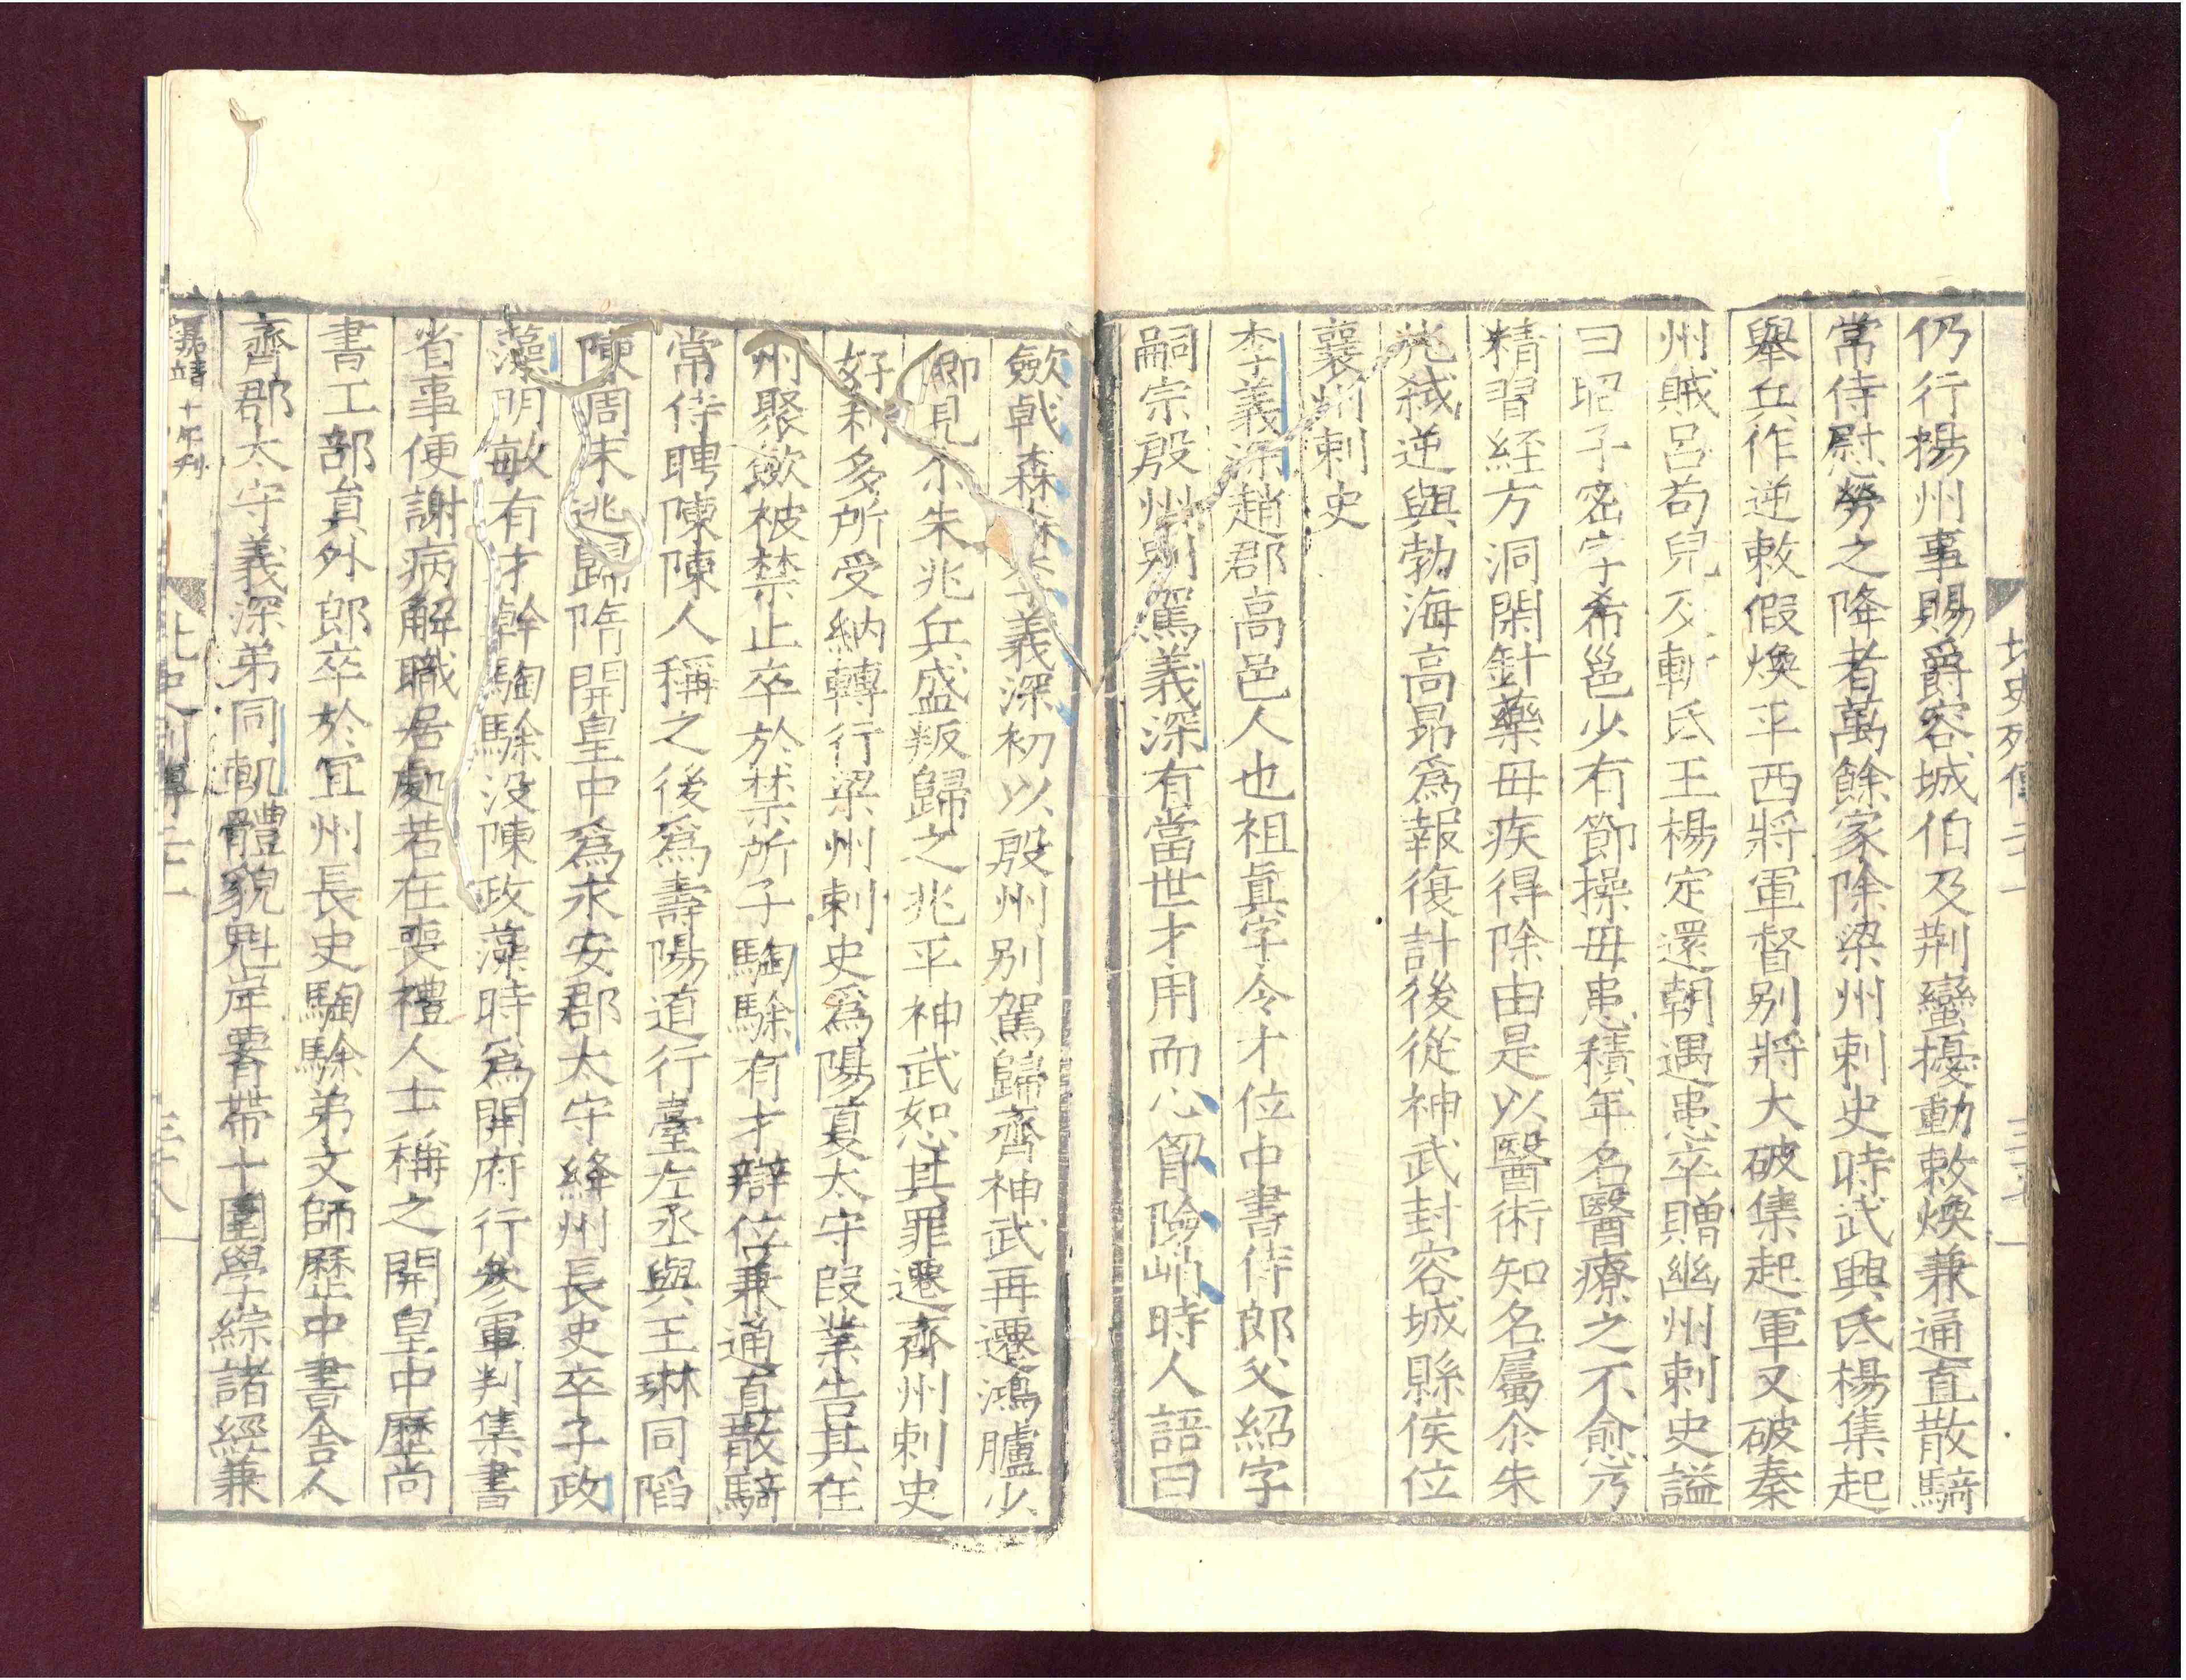 仍行楊州事賜爵容城伯及荆蠻擾動敕煥兼通直散騎
常侍慰勞之降者萬餘家除梁州刺史時武興氐楊集起
舉兵作逆敕假煥平西將軍督别將大破集起軍又破秦
州賊呂苟兒及斬氐王楊定還朝遇患卒贈幽州刺史謚
曰昭子密字希邕少有節操毋患積年名醫療之不愈乃
精習経方洞閑針藥毋疾得除由是以醫術知名屬尒朱
兆弑逆與勃海高昂爲報復計後從神武封容城縣侯位
襄州刺史
李義深趙郡高邑人也祖眞字令才位中書侍郎父紹字
嗣宗殷州别駕義深有當世才用而心胷險峭時人語曰
歛戟森森李義深初以殷州别駕歸齊神武再遷鴻臚少
卿見尒朱兆兵盛叛歸之兆平神武恕其罪遷齊州刺史
好利多所受納轉行梁州刺史爲陽夏太守叚業告其在
州聚歛被禁止卒於禁所子騊駼有才辯位兼通直散騎
常侍聘陳陳人稱之後爲壽陽道行臺左丞與王琳同陷
陳周末逃歸隋開皇中爲永安郡太守絳州長史卒子政
藻明敏有才幹騊駼没陳政藻時爲開府行參軍判集書
省事便謝病解職居處若在喪禮人士稱之開皇中歷尚
書工部員外郎卒於宜州長史騊駼弟文師歷中書舍人
齊郡太守義深弟同軌體貌魁岸䙅帶十圍學綜諸經兼
嘉靖十年刋
北史列傳二十一